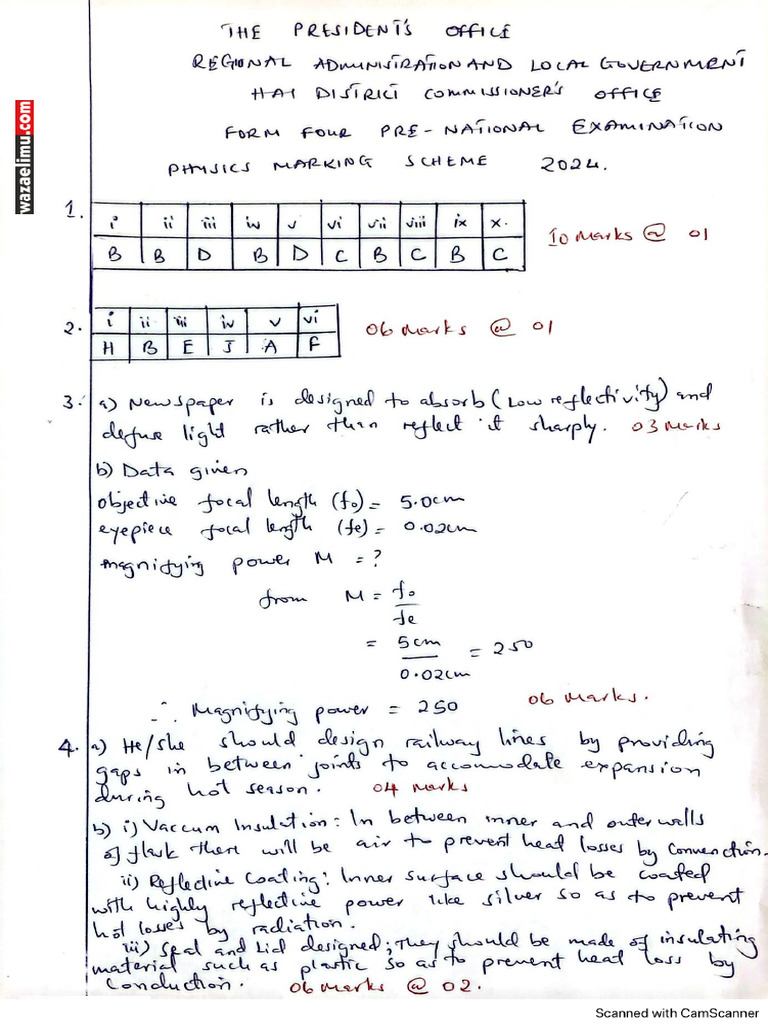 THE PRESIDENT'S OFFICE
REGIONAL ADMINISTRATION AND LOCAL GOVERNMENT
HAI DISTRICT COMMISSIONER'S OFFICE
FORM FOUR PRE-NATIONAL EXAMINATION
PHYSICS MARKING SCHEME 2024.
wazaelimu.com
1.
i ii iii iv v vi vii viii ix x.
B B D B D C B C B C
10 Marks @ 01
2.
i ii iii iv v vi
H B E J A F
06 Marks @ 01
3. a) Newspaper is designed to absorb (Low reflectivity) and
defuse light rather than reflect it sharply. 03 Marks
b) Data given
objective focal length (fo) = 5.0cm
eyepiece focal length (fe) = 0.02cm
magnifying power M = ?
from M = fo
fe
= 5cm = 250
0.02cm
∴ Magnifying power = 250 06 Marks.
4. a) He/she should design railway lines by providing
gaps in between joints to accomodate expansion
during hot season. 04 Marks
b) i) Vaccum Insulation: In between inner and outer walls
of flask there will be air to prevent heat losses by convection.
ii) Reflective Coating: Inner surface should be coated
with highly reflective power like silver so as to prevent
hot losses by radiation.
iii) Seal and Lid designed; They should be made of insulating
material such as plastic so as to prevent heat loss by
Conduction. 06 Marks @ 02.
Scanned with CamScanner